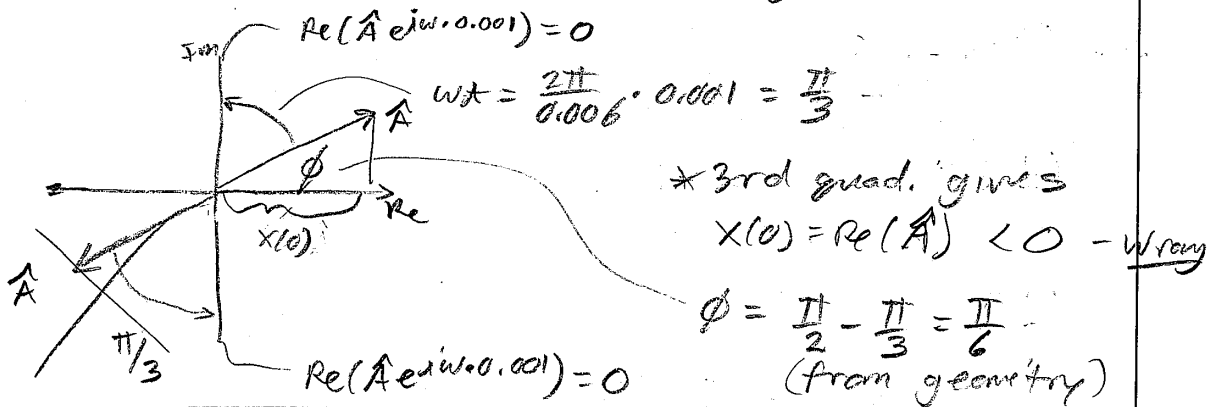 Re(Â e^{iω·0.001}) = 0
Im
ωt = 2π/0.006 · 0.001 = π/3
Â
φ
Re
X(0)
* 3rd quad. gives
X(0) = Re(Â) < 0 - Wrong
Â
π/3
φ = π/2 - π/3 = π/6
(from geometry)
Re(Â e^{iω·0.001}) = 0